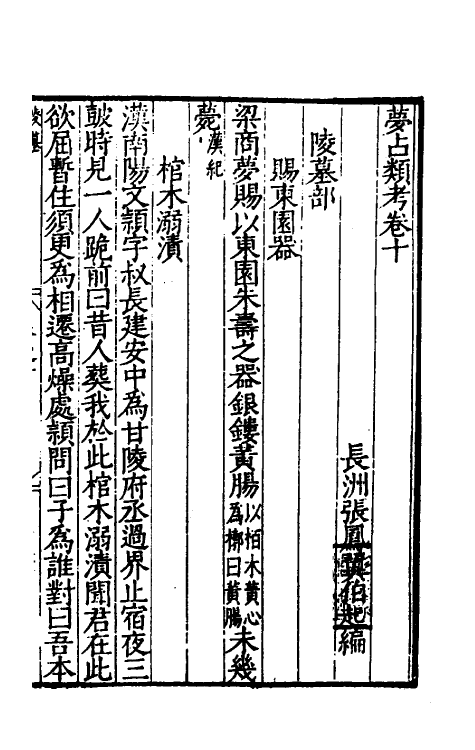 夢占類考卷十
長洲張鳳翼伯起編
陵墓部
賜東園器
梁商夢賜以東園朱壽之器銀鏤黃腸以栢木黃心為槨曰黃腸未幾
薨漢紀
棺木溺漬
漢南陽文頴字叔長建安中為甘陵府丞過界止宿夜三
皷時見一人跪前曰昔人葬我於此棺木溺漬聞君在此
欲屈暫住須更為相遷高燥處頴問曰子為誰對曰吾本